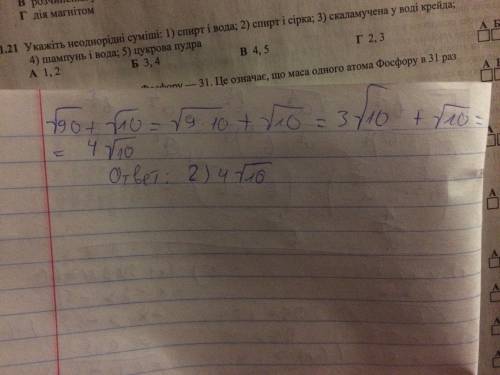 В розчинен
Г дія магнітом
1.21 Укажіть неоднорідні суміші: 1) спирт і вода; 2) спирт і сірка; 3) скаламучена у воді крейда;
4) шампунь і вода; 5) цукрова пудра
А 1, 2 Б 3, 4 В 4, 5 Г 2, 3
Фосфору — 31. Це означає, що маса одного атома Фосфору в 31 раз
√90 + √10 = √9·10 + √10 = 3√10 + √10 =
= 4√10
Ответ: 2) 4√10